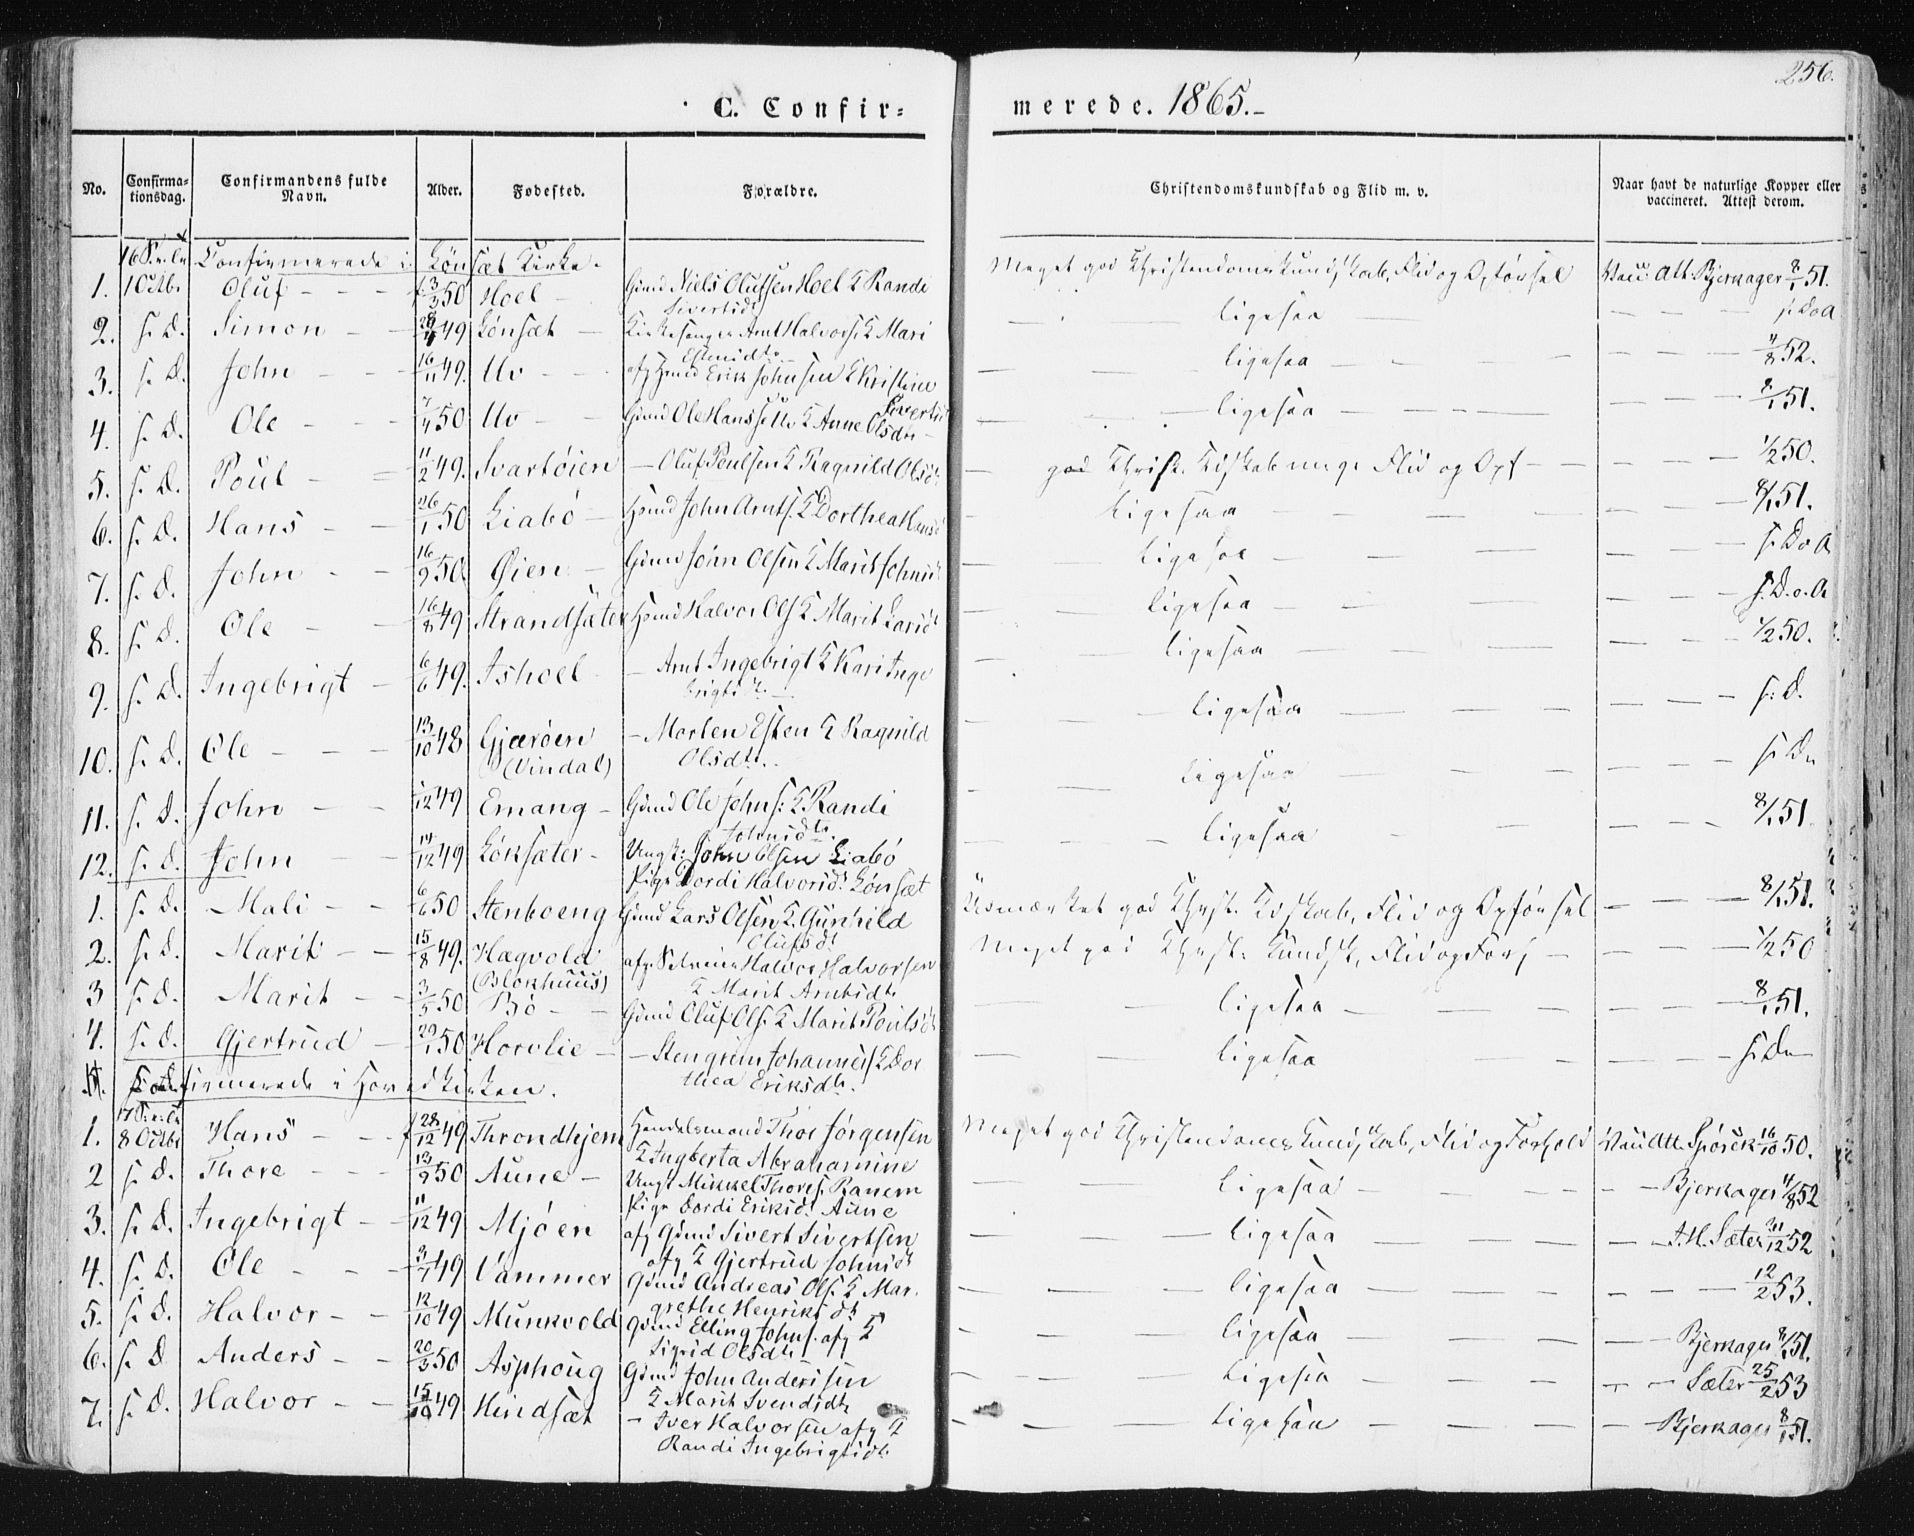 256.
C. Confir= merede. 1865.-
No. Confirma-tionsdag. Confirmandens fulde Navn. Alder. Fødested. Forældre. Christendomskundskab og Flid m. v. Naar havt de naturlige Kopper eller vaccineret. Attest derom.
Confirmerede i Lønsæt Kirke.
1. 1 Octbr Oluf - - - f 3/3 50 Hoel - Gmd Niels Olufsen Hoel & Randi Sivertsdt Meget god Christendomskundskab, Flid og Opførsel Vacc. Att. Bjerkager 8/1 51.
2. s. D. Simon - - 49 Lønsæt - Kirkesanger Arnt Halvors. & Mari Estensdt - ligesaa - s. D o A
3. s. D. John - - 16/11 49. Uv - - afg Hmd Erik Johnsen & Kristine Sivertsdt - ligesaa - 4/8 52.
4. s. D. Ole - - - 7/4 50 Uv - Gmd Ole Hans & Anne Olsdtr - ligesaa - 8/1 51.
5. s. D. Poul - - 11/2 49. Svartøien - Oluf Poulsen & Ragnild Olsdt - god Christ. Kdskab meget Flid og Opf - 1/2 50.
6. s. D. Hans - - 26/1 50 Liabø - Hmd John Arnts. & Dorthea Hansd ligesaa - 8/1 51.
7. s. D. John - - 16/2 50. Øien - Gmd John Olsen & Marit Johnsd ligesaa - s. D o A
8. s. D. Ole - - 16/8 49 Strandsæter Hmd Halvor Ols & Marit Larsd ligesaa - s. D. o. A
9. s. D. Ingebrigt - 6/6 49. Ishoel - Arnt Ingebrigt & Kari Ingebrigtsdt. - ligesaa - 1/2 50.
10. s. D. Ole - - - 13/10 48 Gjærøien (Vindal) - Morten Esten & Ragnild Olsdtr. - ligesaa - s. D.
11. s. D. John - - /12 49 Emang - Gmd Ole Johns. & Randi Johnsdtr. ligesaa - s. D.
12. s. D. John - - 14/12 49 Løksæter - Ungk: John Olsen Liabø Pige Dordi Halvorsdt Lønsæt - ligesaa - 8/1 51.
1. s. D. Mali - - 6/6 50 Stenboeng Gmd Lars Olsen & Gunhild Olufsdt Udmærket god Christ. Kdskab, Flid og Opførsel - 8/1 51.
2. s. D. Marit - - 15/8 49. Hægvold (Blokhuus) afg. Halvor Halvorsen & Marit Arntsdtr Meget god Christ. Kundsk, Flid og Forh - 1/2 50
3 s. D. Marit - - 3/5 50 Bø - - Gmd Oluf Ols. & Marit Poulsdt ligesaa - 8/1 51.
4. s. D. Gjertrud - 29/1 50 Horvlie - - Stengrim Johannes & Dorthea Eriksdtr. ligesaa - s. D.
Confirmerede i Hovedkirken.
1. 8 Octbr Hans - - f 28/12 49 Throndhjem Handelsmand Thor Jørgensen & Ingberta Abrahamine Meget god Christendomskundskab, Flid og Forhold Vac. Att. Spørck 16/10 50.
2 s. D. Thore - - - 13/9 50 Aune - Ungk Mikkel Thores. Ranem Pige Dordi Eriksdt. Aune - ligesaa - Bjerkager 4/8 52
3. s. D. Ingebrigt - - 11/12 49 Mjøen afg Gmd Sivert Sivertsen afg & Gjertrud Johnsdt - ligesaa - J. H. Sæter 30/12 52
4. s. D. Ole - - - 3/7 49 Vammer Gmd Andreas Ols. & Margrethe Henriksdt - ligesaa - 12/2 53.
5. s. D. Halvor - - 12/10 49 Munkvold Gmd Elling Johns. afg & Sigrid Olsdtr - ligesaa - Bjerkager 8/1 51.
6. s. D Anders - - 20/3 50 Asphoug Gmd John Anderssen & Marit Svendsdtr ligesaa - Sæter 25/2 53
7. s. D. Halvor - - 15/10 49 Hindsæt - Iver Halvorsen afg & Randi Ingebrigtsdt. - ligesaa - Bjerkager 8/1 51.